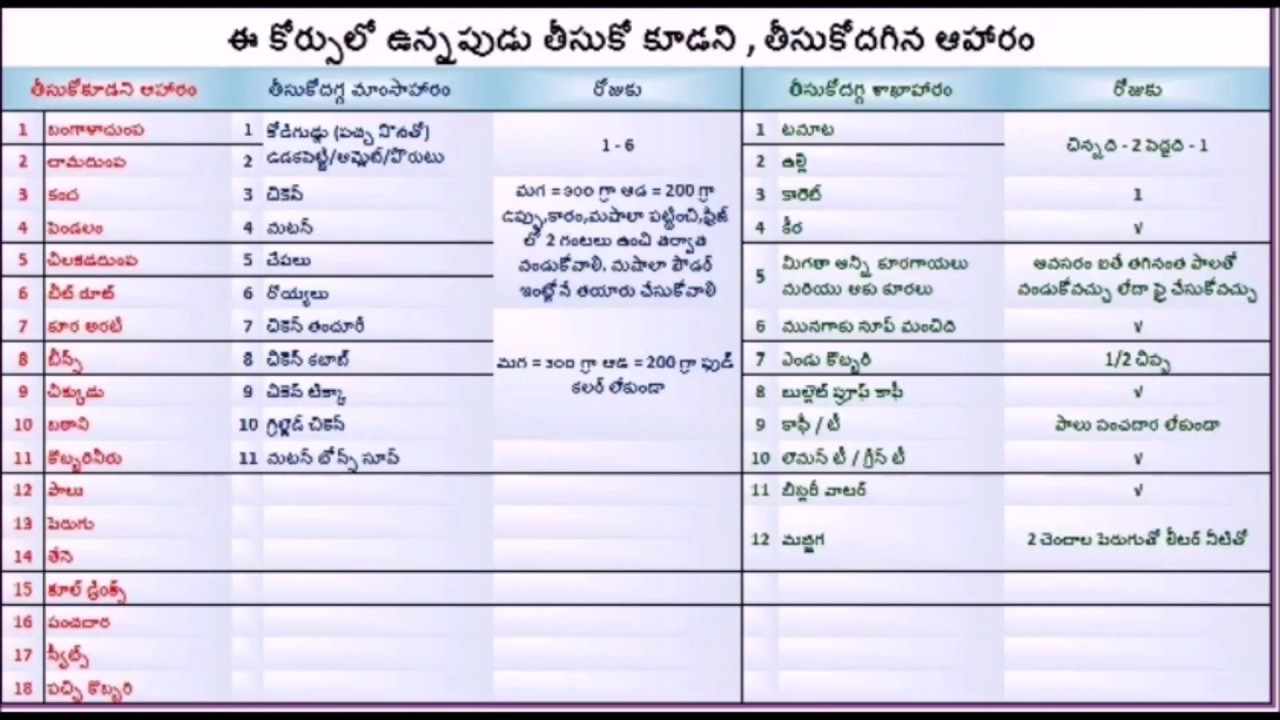 ఈ కోర్సులో ఉన్నపుడు తీసుకో కూడని , తీసుకోదగిన ఆహారం
తీసుకోకూడని ఆహారం తీసుకోదగ్గ మాంసాహారం రోజుకు తీసుకోదగ్గ శాఖాహారం రోజుకు
1 బంగాళాదుంప 1 కోడిగుడ్లు (పచ్చ సొనతో) 1 టమాట
ఉడకపెట్టి/ఆమ్లెట్/పొరుటు 1 - 6 చిన్నది - 2 పెద్దది - 1
2 చామదుంప 2 2 ఉల్లి
3 కంద 3 చికెన్ మగ = 300 గ్రా ఆడ = 200 గ్రా 3 కారెట్ 1
ఉప్పు,కారం,మసాలా పట్టించి,ఫ్రిజ్
4 పెండలం 4 మటన్ 4 కీర √
లో 2 గంటలు ఉంచి తర్వాత
5 చిలకడదుంప 5 చేపలు వండుకోవాలి. మసాలా పౌడర్ 5 మిగతా అన్ని కూరగాయలు అవసరం ఐతే తగినంత పాలతో
6 బీట్ రూట్ 6 రొయ్యలు ఇంట్లోనే తయారు చేసుకోవాలి మరియు ఆకు కూరలు వండుకోవచ్చు లేదా ఫ్రై చేసుకోవచ్చు
7 కూర అరటి 7 చికెన్ తందూరీ 6 మునగాకు సూప్ మంచిది √
8 బీన్స్ 8 చికెన్ కబాబ్ మగ = 300 గ్రా ఆడ = 200 గ్రా ఫుడ్ 7 ఎండు కొబ్బరి 1/2 చిప్ప
కలర్ లేకుండా
9 చిక్కుడు 9 చికెన్ టిక్కా 8 బుల్లెట్ ప్రూఫ్ కాఫీ √
10 బఠాని 10 గ్రిల్డ్ చికెన్ 9 కాఫీ / టీ పాలు పంచదార లేకుండా
11 కొబ్బరినీరు 11 మటన్ బోన్స్ సూప్ 10 లెమన్ టీ / గ్రీన్ టీ √
12 పాలు 11 బిస్లరీ వాటర్ √
13 పెరుగు
12 మజ్జిగ 2 చెంచాల పెరుగుతో లీటర్ నీటితో
14 తేనె
15 కూల్ డ్రింక్స్
16 పంచదార
17 స్వీట్స్
18 పచ్చి కొబ్బరి